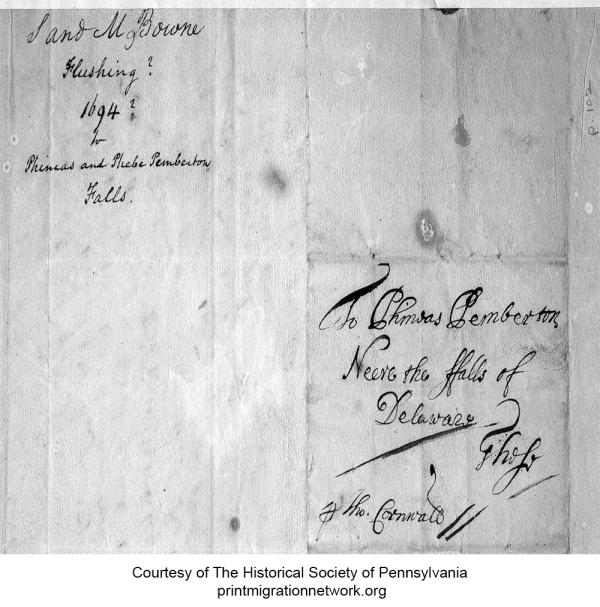 S and M Bowne
Flushing?
1694?
to
Phineas and Phebe Pemberton
Falls.
p. 102
To Phineas Pemberton
Neere the ffalls of
Delaware
These
Tho. Cornwald
Courtesy of The Historical Society of Pennsylvania
printmigrationnetwork.org